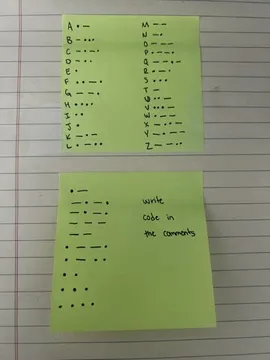 A • —
B — • • •
C — • — •
D — • •
E •
F • • — •
G — — •
H • • • •
I • •
J •
K — • —
L • — • •
M — —
N — •
O — — —
P • — — •
Q — — • —
R • — •
S • • •
T —
U • • —
V • • • —
W • — —
X — • • —
Y — • — —
Z — — • •
• —
write
code in
the comments